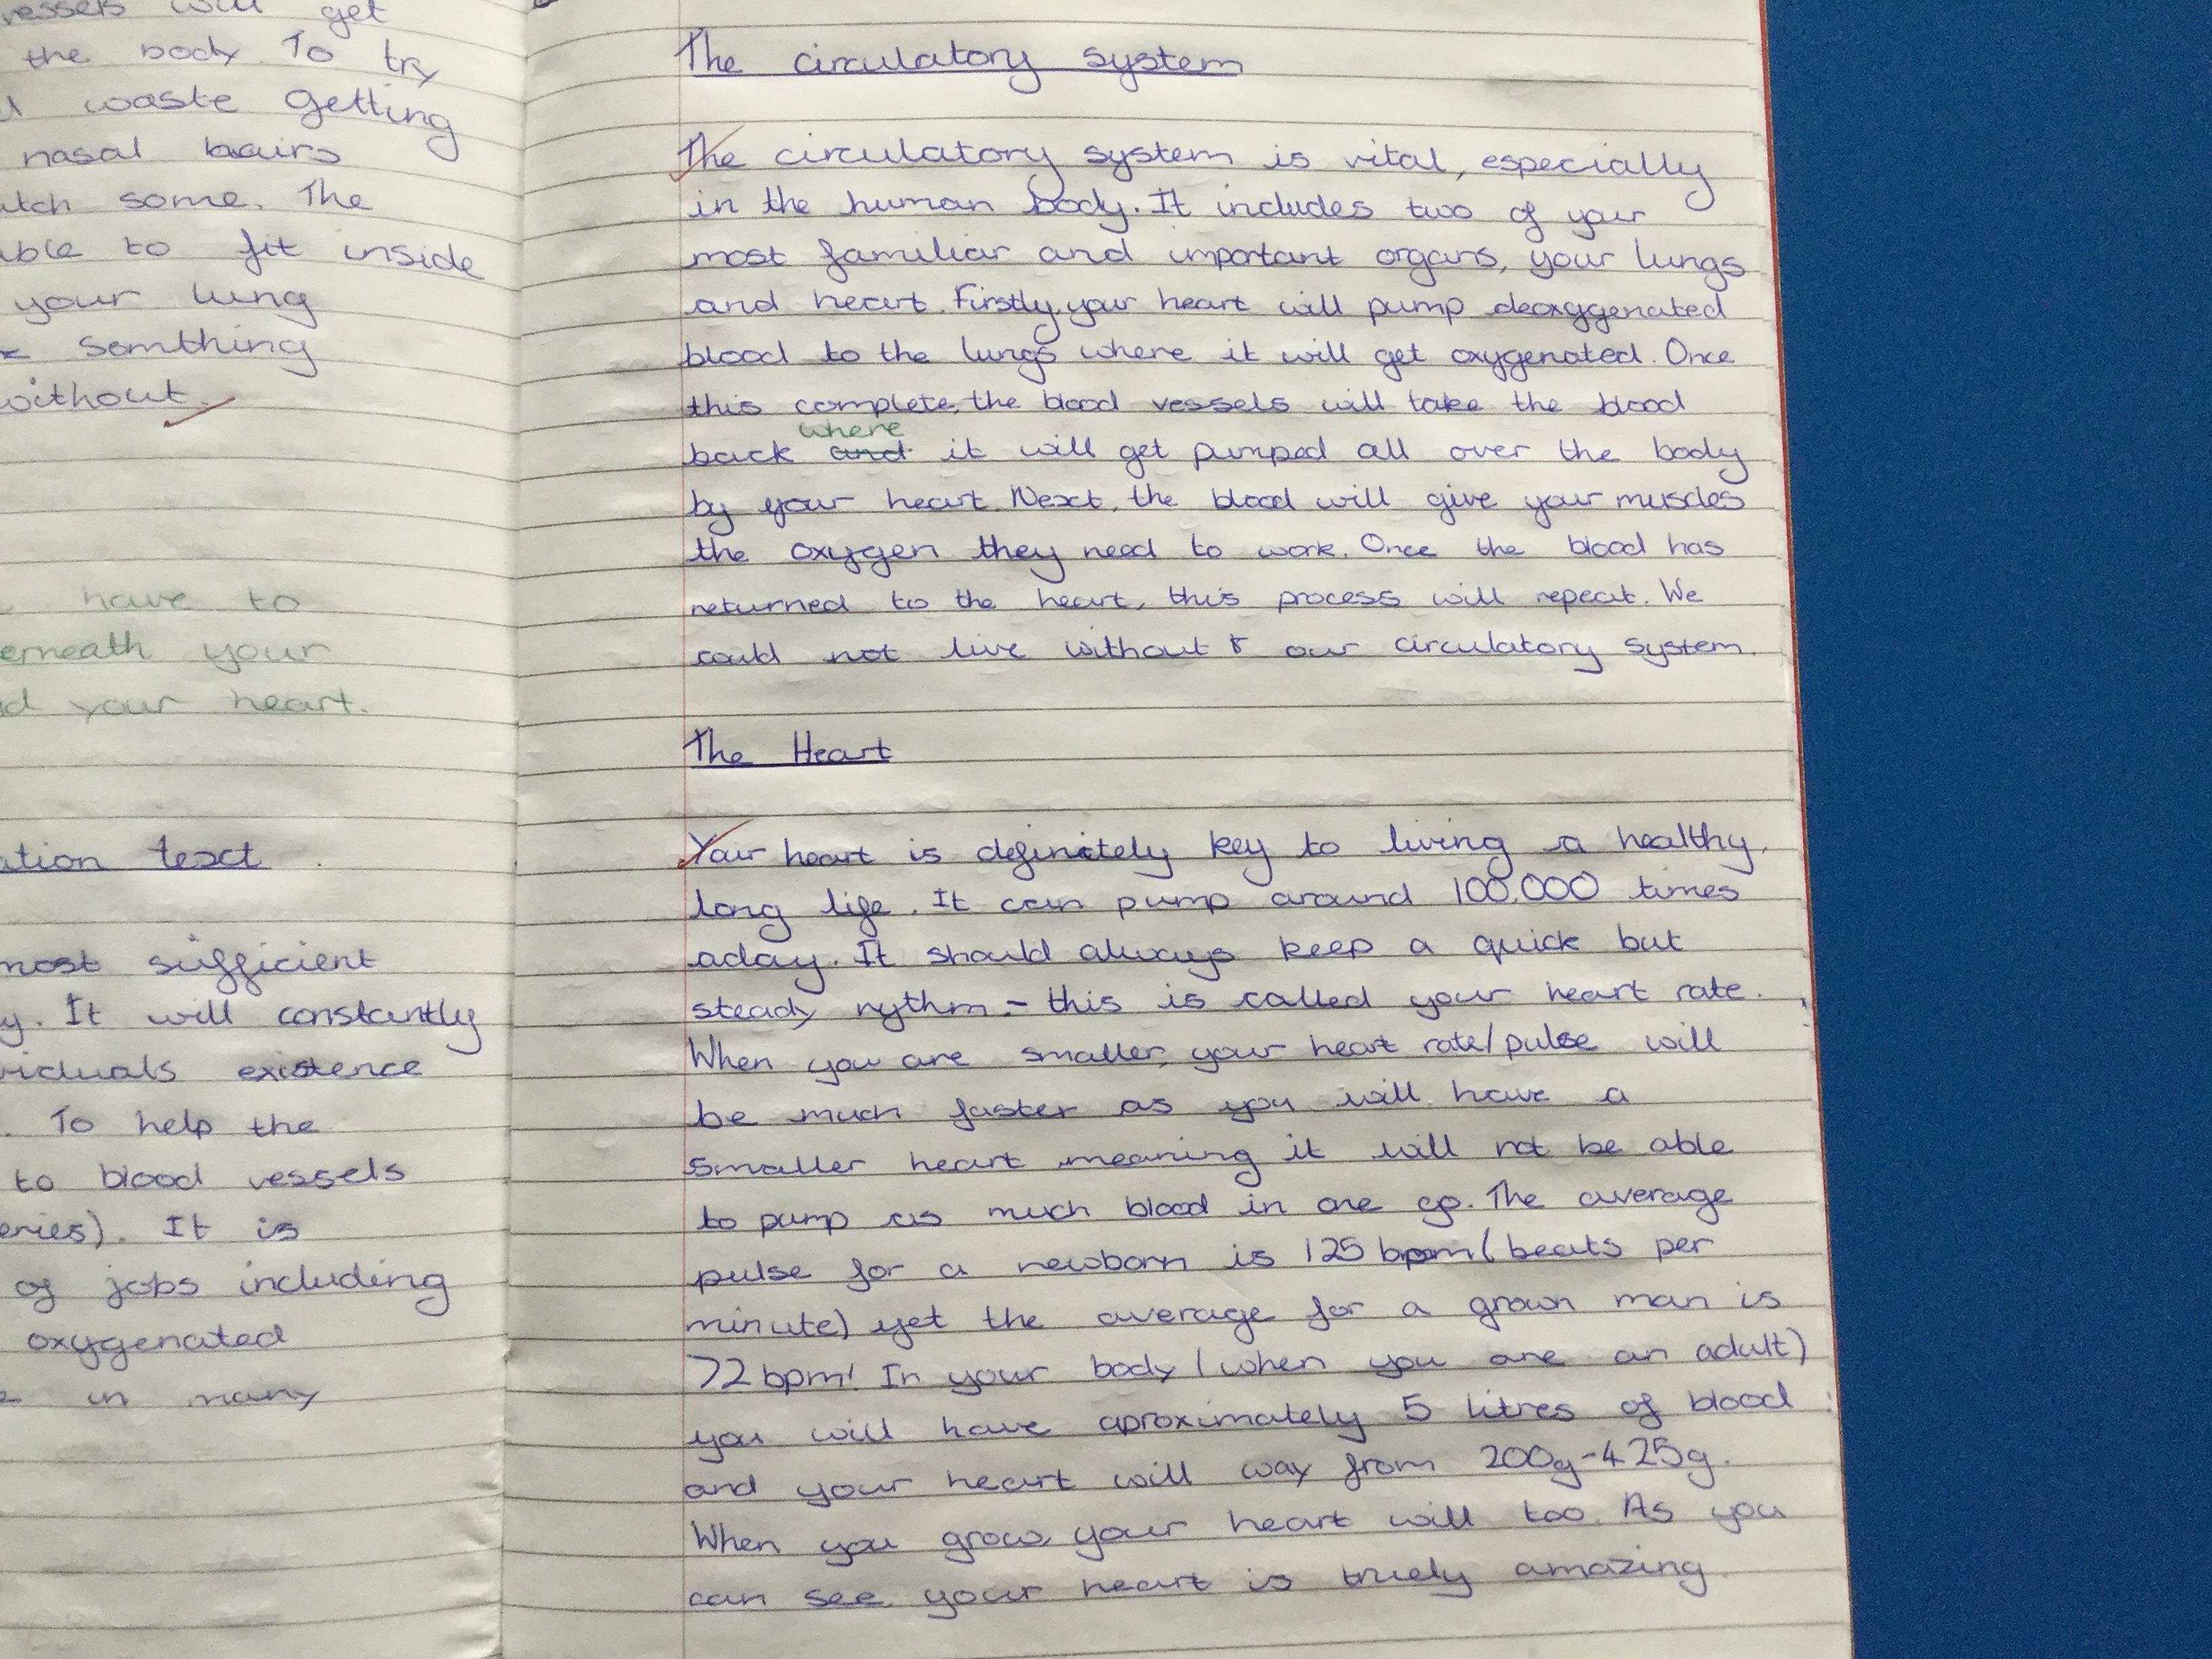 vessels will get
the body To try
waste getting
nasal hairs
some. The
able to fit inside
your lung
somthing
without.
have to
your
your heart.
text
most sufficient
It will constantly
existence
. To help the
to blood vessels
It is
of jobs including
oxygenated
in many
The circulatory system
The circulatory system is vital, especially
in the human body. It includes two of your
most familiar and important organs, your lungs
and heart. Firstly, your heart will pump deoxygenated
blood to the lungs where it will get oxygenated. Once
this complete, the blood vessels will take the blood
where
back and it will get pumped all over the body
by your heart. Next, the blood will give your muscles
the oxygen they need to work. Once the blood has
returned to the heart, this process will repeat. We
could not live without our circulatory system.
The Heart
Your heart is definitely key to living a healthy,
long life. It can pump around 100,000 times
aday. It should always keep a quick but
steady rythm - this is called your heart rate.
When you are smaller, your heart rate/pulse will
be much faster as you will have a
smaller heart meaning it will not be able
to pump as much blood in one go. The average
pulse for a newborn is 125 bpm (beats per
minute) yet the average for a grown man is
72 bpm! In your body (when you are an adult)
you will have aproximately 5 litres of blood
and your heart will way from 200g-425g.
When you grow, your heart will too. As you
can see, your heart is truely amazing.